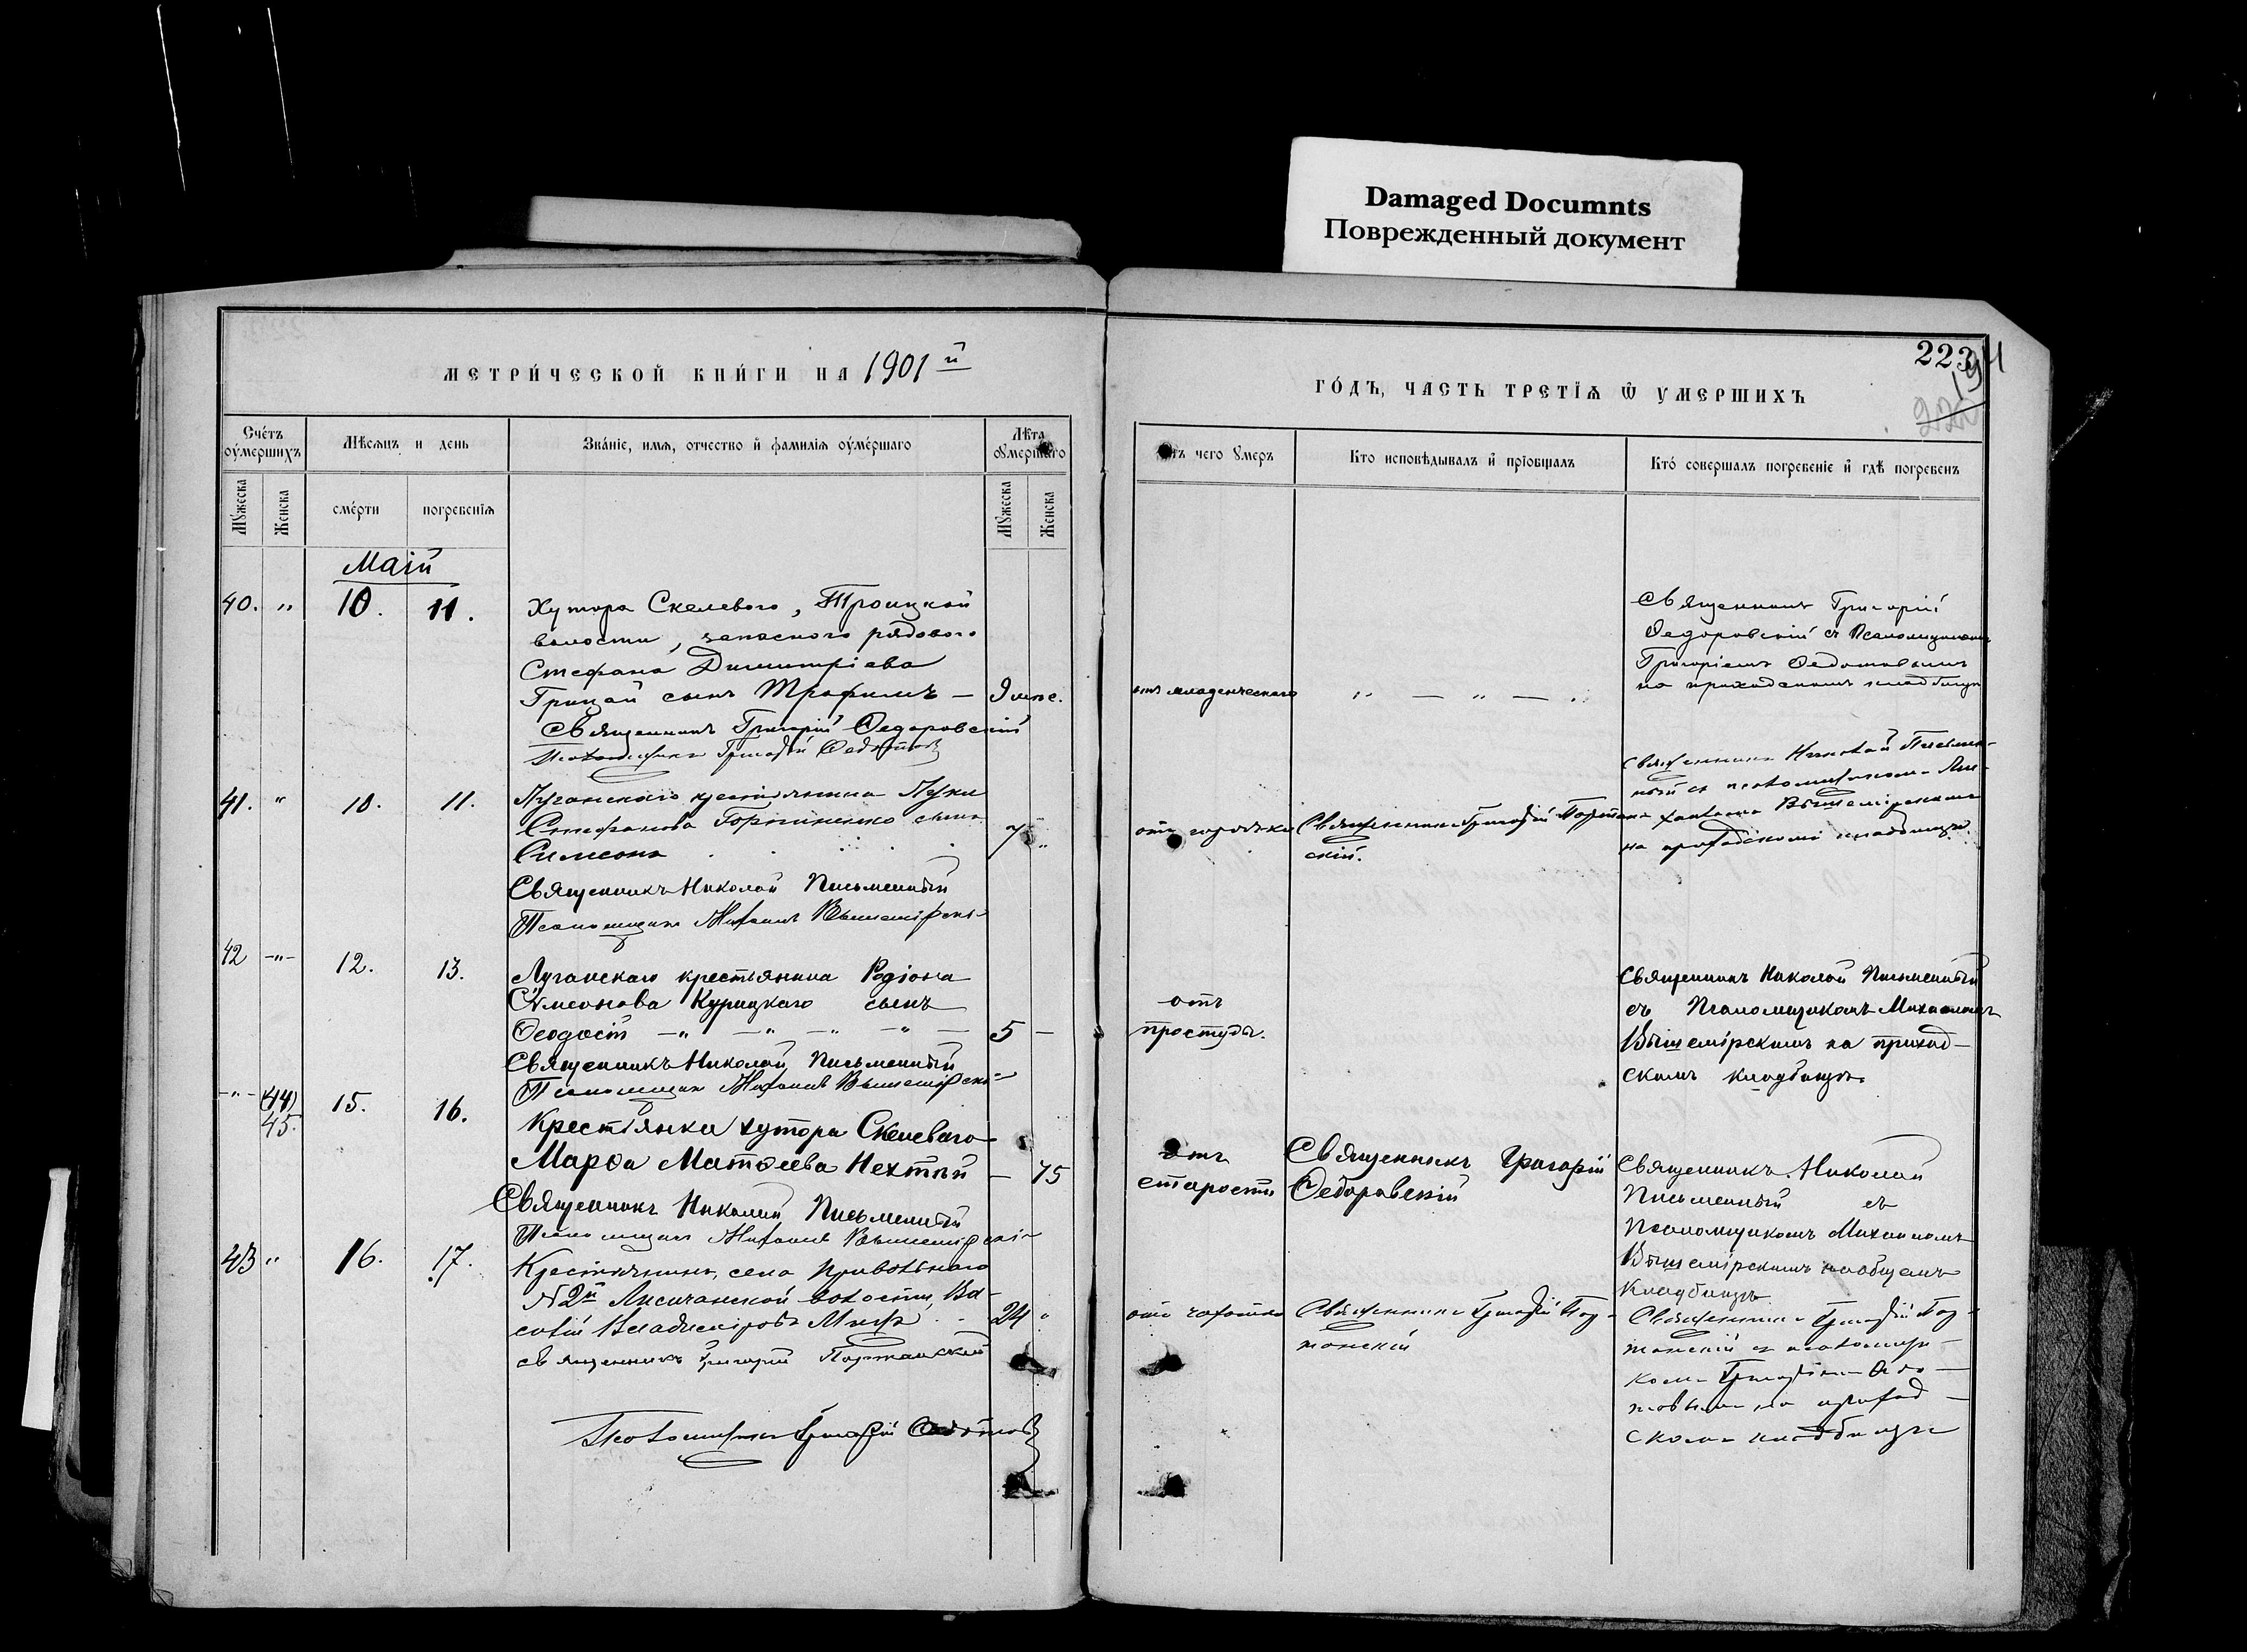 Damaged Documnts
Поврежденный документ
МЕТРИ́ЧЕСКОЙ КНИ́ГИ НА 1901 й
ГО́ДЪ, ЧАСТЬ ТРЕТІѦ Ѿ УМЕРШИХЪ
223
194
Сче́тъ оу҆мершихъ
Мѣсѧцъ и день
Зва́ніе, имѧ, отчество и҆ фамиліѧ оу҆ме́ршаго
Лѣта оумершаго
Отъ чего Ꙋмеръ
Кто исповѣдывалъ и҆ прїобщалъ
Кто́ совершалъ погребеніе и҆ гдѣ погребенъ
Мꙋжеска
Женска
сме́рти
погребеніѧ
Мꙋжеска
Женска
Маій
40. " 10. 11.
Хутора Скелевого, Троицкой
волости, запасного рядового
Стефана Димитріева
Грицай сынъ Трофимъ — 9 мѣс.
Священникъ Григорій Ѳедоровскій
Псаломщикъ Григорій Ѳедотовъ
отъ младенческаго
" — " — "
Священникъ Григорій
Ѳедоровскій съ Псаломщикомъ
Григоріемъ Ѳедотовымъ
на приходскомъ кладбищѣ
41. " 10. 11.
Луганскаго крестьянина Луки
Стефанова сына
Симеонъ 7 "
Священникъ Николай Письменный
Псаломщикъ Михаилъ Вышемірскі-
Священникъ Григорій
скій.
Священникъ Николай Письмен-
ный съ псаломщикомъ Ми-
хаиломъ Вышемірскимъ
на приходскомъ кладбищѣ.
42 -"- 12. 13.
Луганскаго крестьянина Родіона
Сѵмеонова Курицкаго сынъ
Ѳеодосій -" -" -" -" — 5 —
Священникъ Николай Письменный
Псаломщикъ Михаилъ Вышемірскі-
отъ
простуды.
Священникъ Николай Письменный
съ Псаломщикомъ Михаиломъ
Вышемірскимъ на приход-
скомъ кладбищѣ.
-"- (44) 15. 16.
45.
Крестьянка хутора Скелеваго
Марѳа Матѳеева Нехтый — 75
Священникъ Николай Письменный
Псаломщикъ Михаилъ Вышемірскі-
отъ
старости
Священникъ Григорій
Ѳедоровскій
Священникъ Николай
Письменный съ
Псаломщикомъ Михаиломъ
Вышемірскимъ на общемъ
кладбищѣ
43 " 16. 17.
Крестьянинъ села Привольнаго
№ 2й Лисичанской волости, Ва-
силій Владиміровъ 24 "
священникъ Григорій Портянскій
Псаломщикъ Григорій Ѳедотовъ
отъ чахотки
Священникъ Григорій Пор-
тянскій
Священникъ Григорій Пор-
тянскій съ псаломщи-
комъ Григоріемъ Ѳедо-
товымъ на приход-
скомъ кладбищѣ